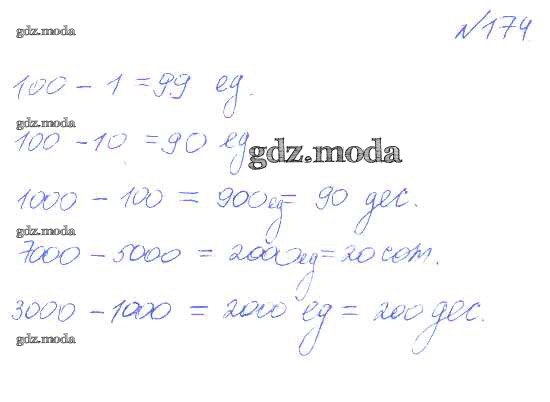 gdz.moda
№174
100 - 1 = 99 ед.
gdz.moda
100 - 10 = 90 ед
gdz.moda
1000 - 100 = 900 ед = 90 дес.
gdz.moda
7000 - 5000 = 2000 ед = 20 сот.
3000 - 1000 = 2000 ед = 200 дес.
gdz.moda